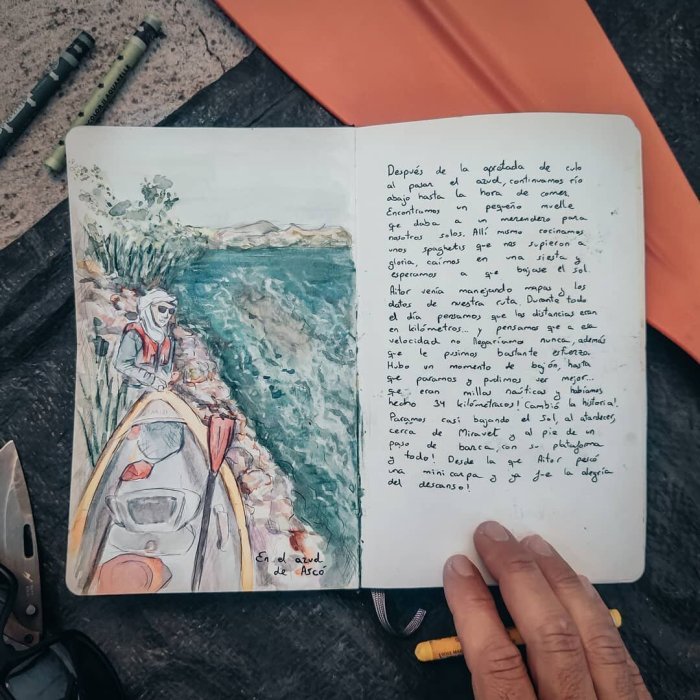 En el azud
de Ascó
Después de la apretada de culo
al pasar el azud, continuamos río
abajo hasta la hora de comer.
Encontramos un pequeño muelle
que daba a un merendero para
nosotros solos. Allí mismo cocinamos
unos spaghetis que nos supieron a
gloria, caímos en una siesta y
esperamos a que bajase el sol.
Aitor venía manejando mapas y los
datos de nuestra ruta. Durante todo
el día pensamos que las distancias eran
en kilómetros... y pensamos que a esa
velocidad no llegaríamos nunca, además
que le pusimos bastante esfuerzo.
Hubo un momento de bajón, hasta
que paramos y pudimos ver mejor...
que eran millas naúticas y habíamos
hecho 34 kilómetracos! Cambió la historia!
Paramos casi bajando el sol, al atardecer,
cerca de Miravet y al pie de un
paso de barca, con su plataforma
y todo! Desde la que Aitor pescó
una mini carpa y ya fue la alegría
del descanso!